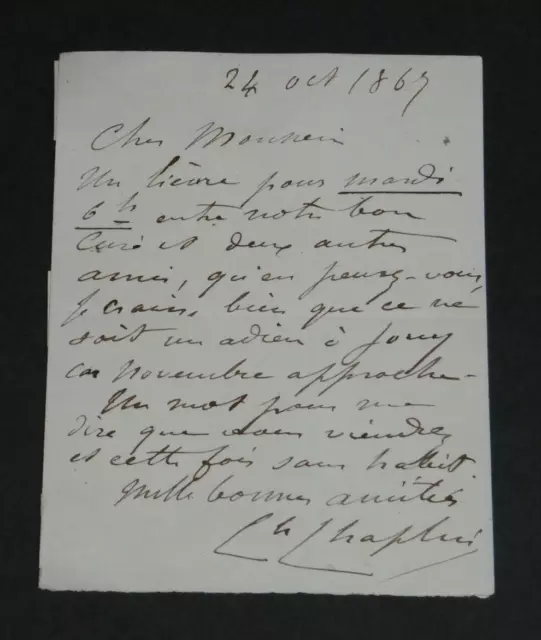 24 oct 1867
Cher Monsieur
Un lièvre pour mardi
6 h entre notre bon
Curé et deux autres
amis, qu'en pensez-vous
Je crains bien que ce ne
soit un adieu à Jouy
car novembre approche-
Un mot pour me
dire que vous viendrez
et cette fois sans habit
Mille bonnes amitiés
Ch Chaplin